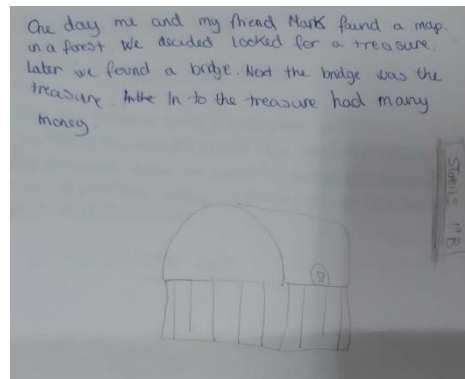 One day me and my friend Mark found a map
in a forest. We decided looked for a treasure.
Later we found a bridge. Next the bridge was the
treasure. In the In to the treasure had many
money
STORIES 1ºB